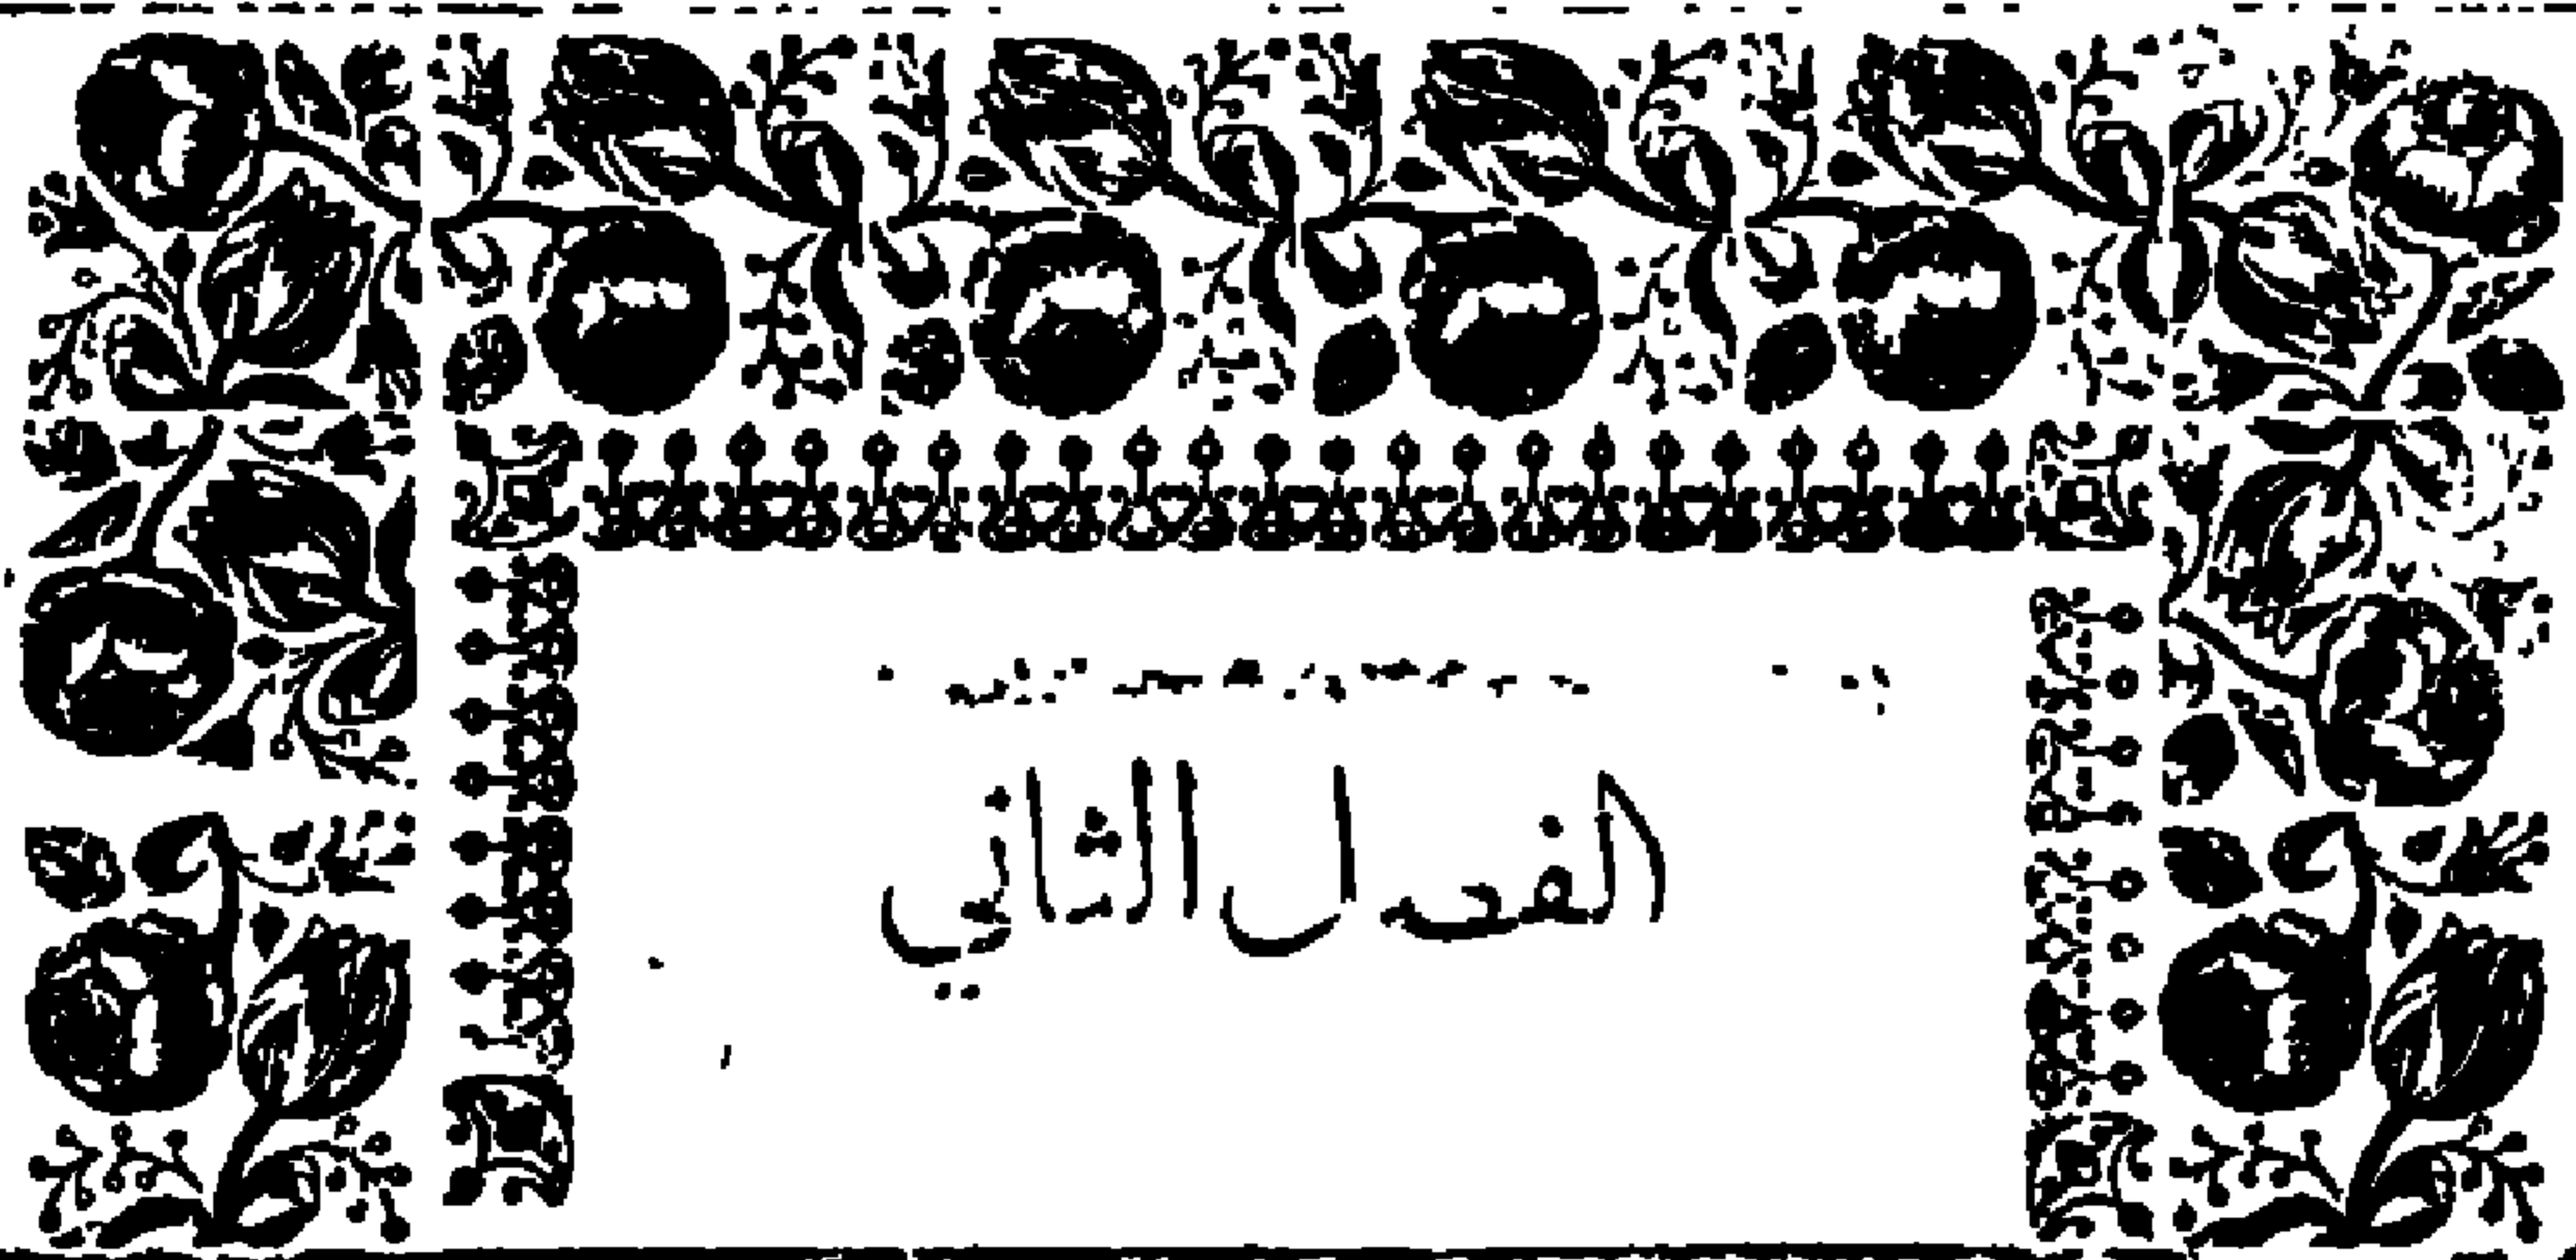 الفصل الثاني